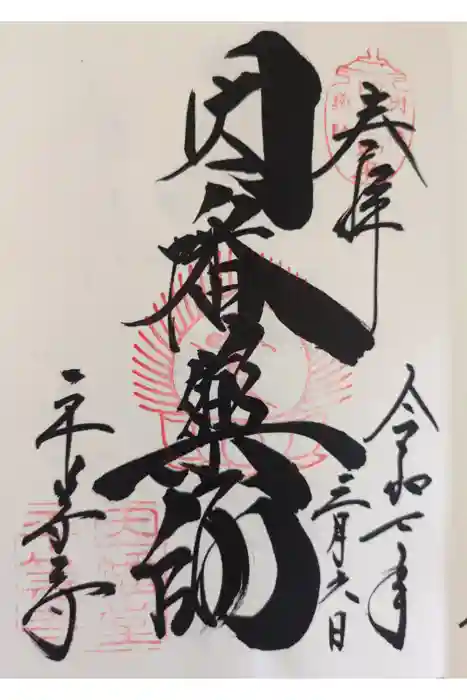 奉拝
令和七年
三月六日
因幡薬師
平等寺
因幡堂